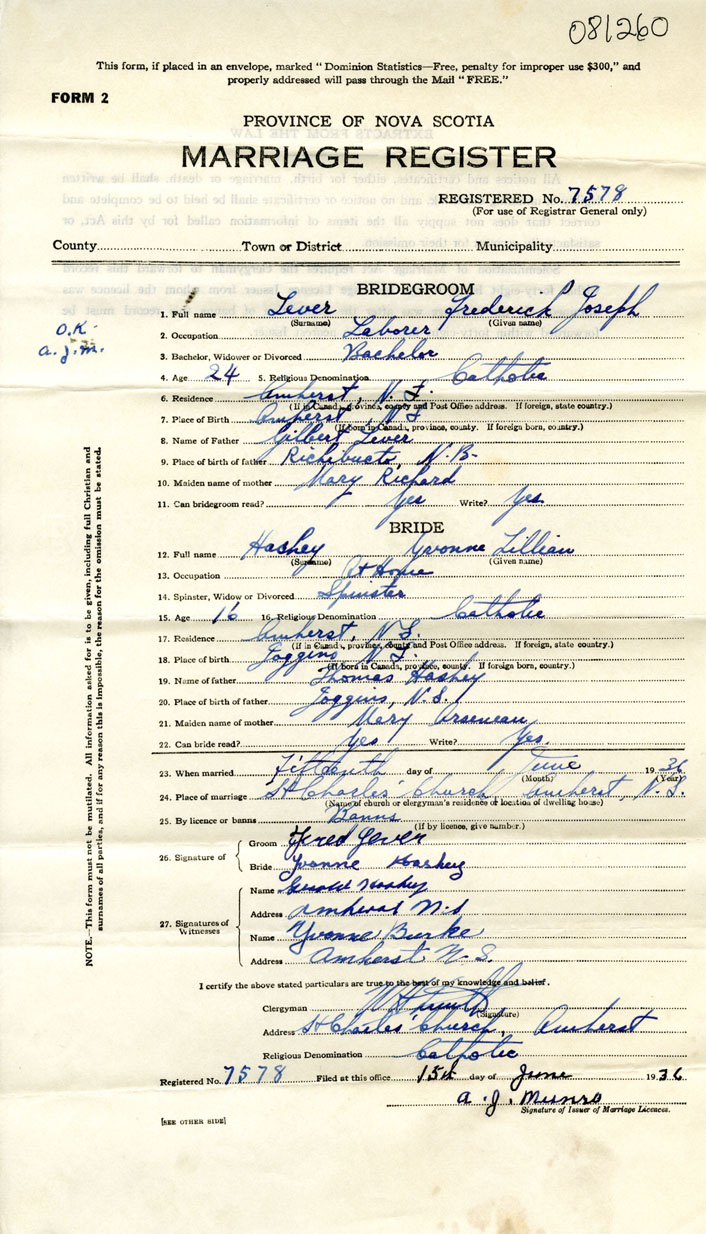 081260
This form, if placed in an envelope, marked "Dominion Statistics—Free, penalty for improper use $300," and
properly addressed will pass through the Mail "FREE."
FORM 2
PROVINCE OF NOVA SCOTIA
MARRIAGE REGISTER
REGISTERED No. 7578
(For use of Registrar General only)
County Town or District Municipality
BRIDEGROOM
O.K.
a.j.m.
1. Full name Lever Frederick Joseph
(Surname) (Given name)
2. Occupation Laborer
3. Bachelor, Widower or Divorced Bachelor
4. Age 24 5. Religious Denomination Catholic
6. Residence Amherst, N.S.
(If in Canada, province, county and Post Office address. If foreign, state country.)
7. Place of Birth Amherst, N.S.
(If born in Canada, province, county. If foreign born, country.)
8. Name of Father Gilbert Lever
9. Place of birth of father Richibucto, N.B.
10. Maiden name of mother Mary Richard
11. Can bridegroom read? Yes Write? Yes
BRIDE
12. Full name Hashey Yvonne Lillian
(Surname) (Given name)
13. Occupation At Home
14. Spinster, Widow or Divorced Spinster
15. Age 16 16. Religious Denomination Catholic
17. Residence Amherst, N.S.
(If in Canada, province, county and Post Office address. If foreign, state country.)
18. Place of birth Joggins N.S.
(If born in Canada, province, county. If foreign born, country.)
19. Name of father Thomas Hashey
20. Place of birth of father Joggins, N.S.
21. Maiden name of mother Mary Arseneau
22. Can bride read? Yes Write? Yes.
23. When married Fifteenth day of June 1936
(Month) (Year)
24. Place of marriage St Charles' Church Amherst, N.S.
(Name of church or clergyman's residence or location of dwelling house)
25. By licence or banns Banns
(If by licence, give number.)
26. Signature of
Groom Fred Lever
Bride Yvonne Hashey
27. Signatures of Witnesses
Name Hashey
Address Amherst N.S
Name Yvonne Burke
Address Amherst N.S.
I certify the above stated particulars are true to the best of my knowledge and belief.
Clergyman
(Signature)
Address St Charles' Church, Amherst
Religious Denomination Catholic
Registered No. 7578 Filed at this office 15th day of June 1936
A. J. Munro
Signature of Issuer of Marriage Licences.
[SEE OTHER SIDE]
NOTE.—This form must not be mutilated. All information asked for is to be given, including full Christian and
surnames of all parties, and if for any reason this is impossible, the reason for the omission must be stated.